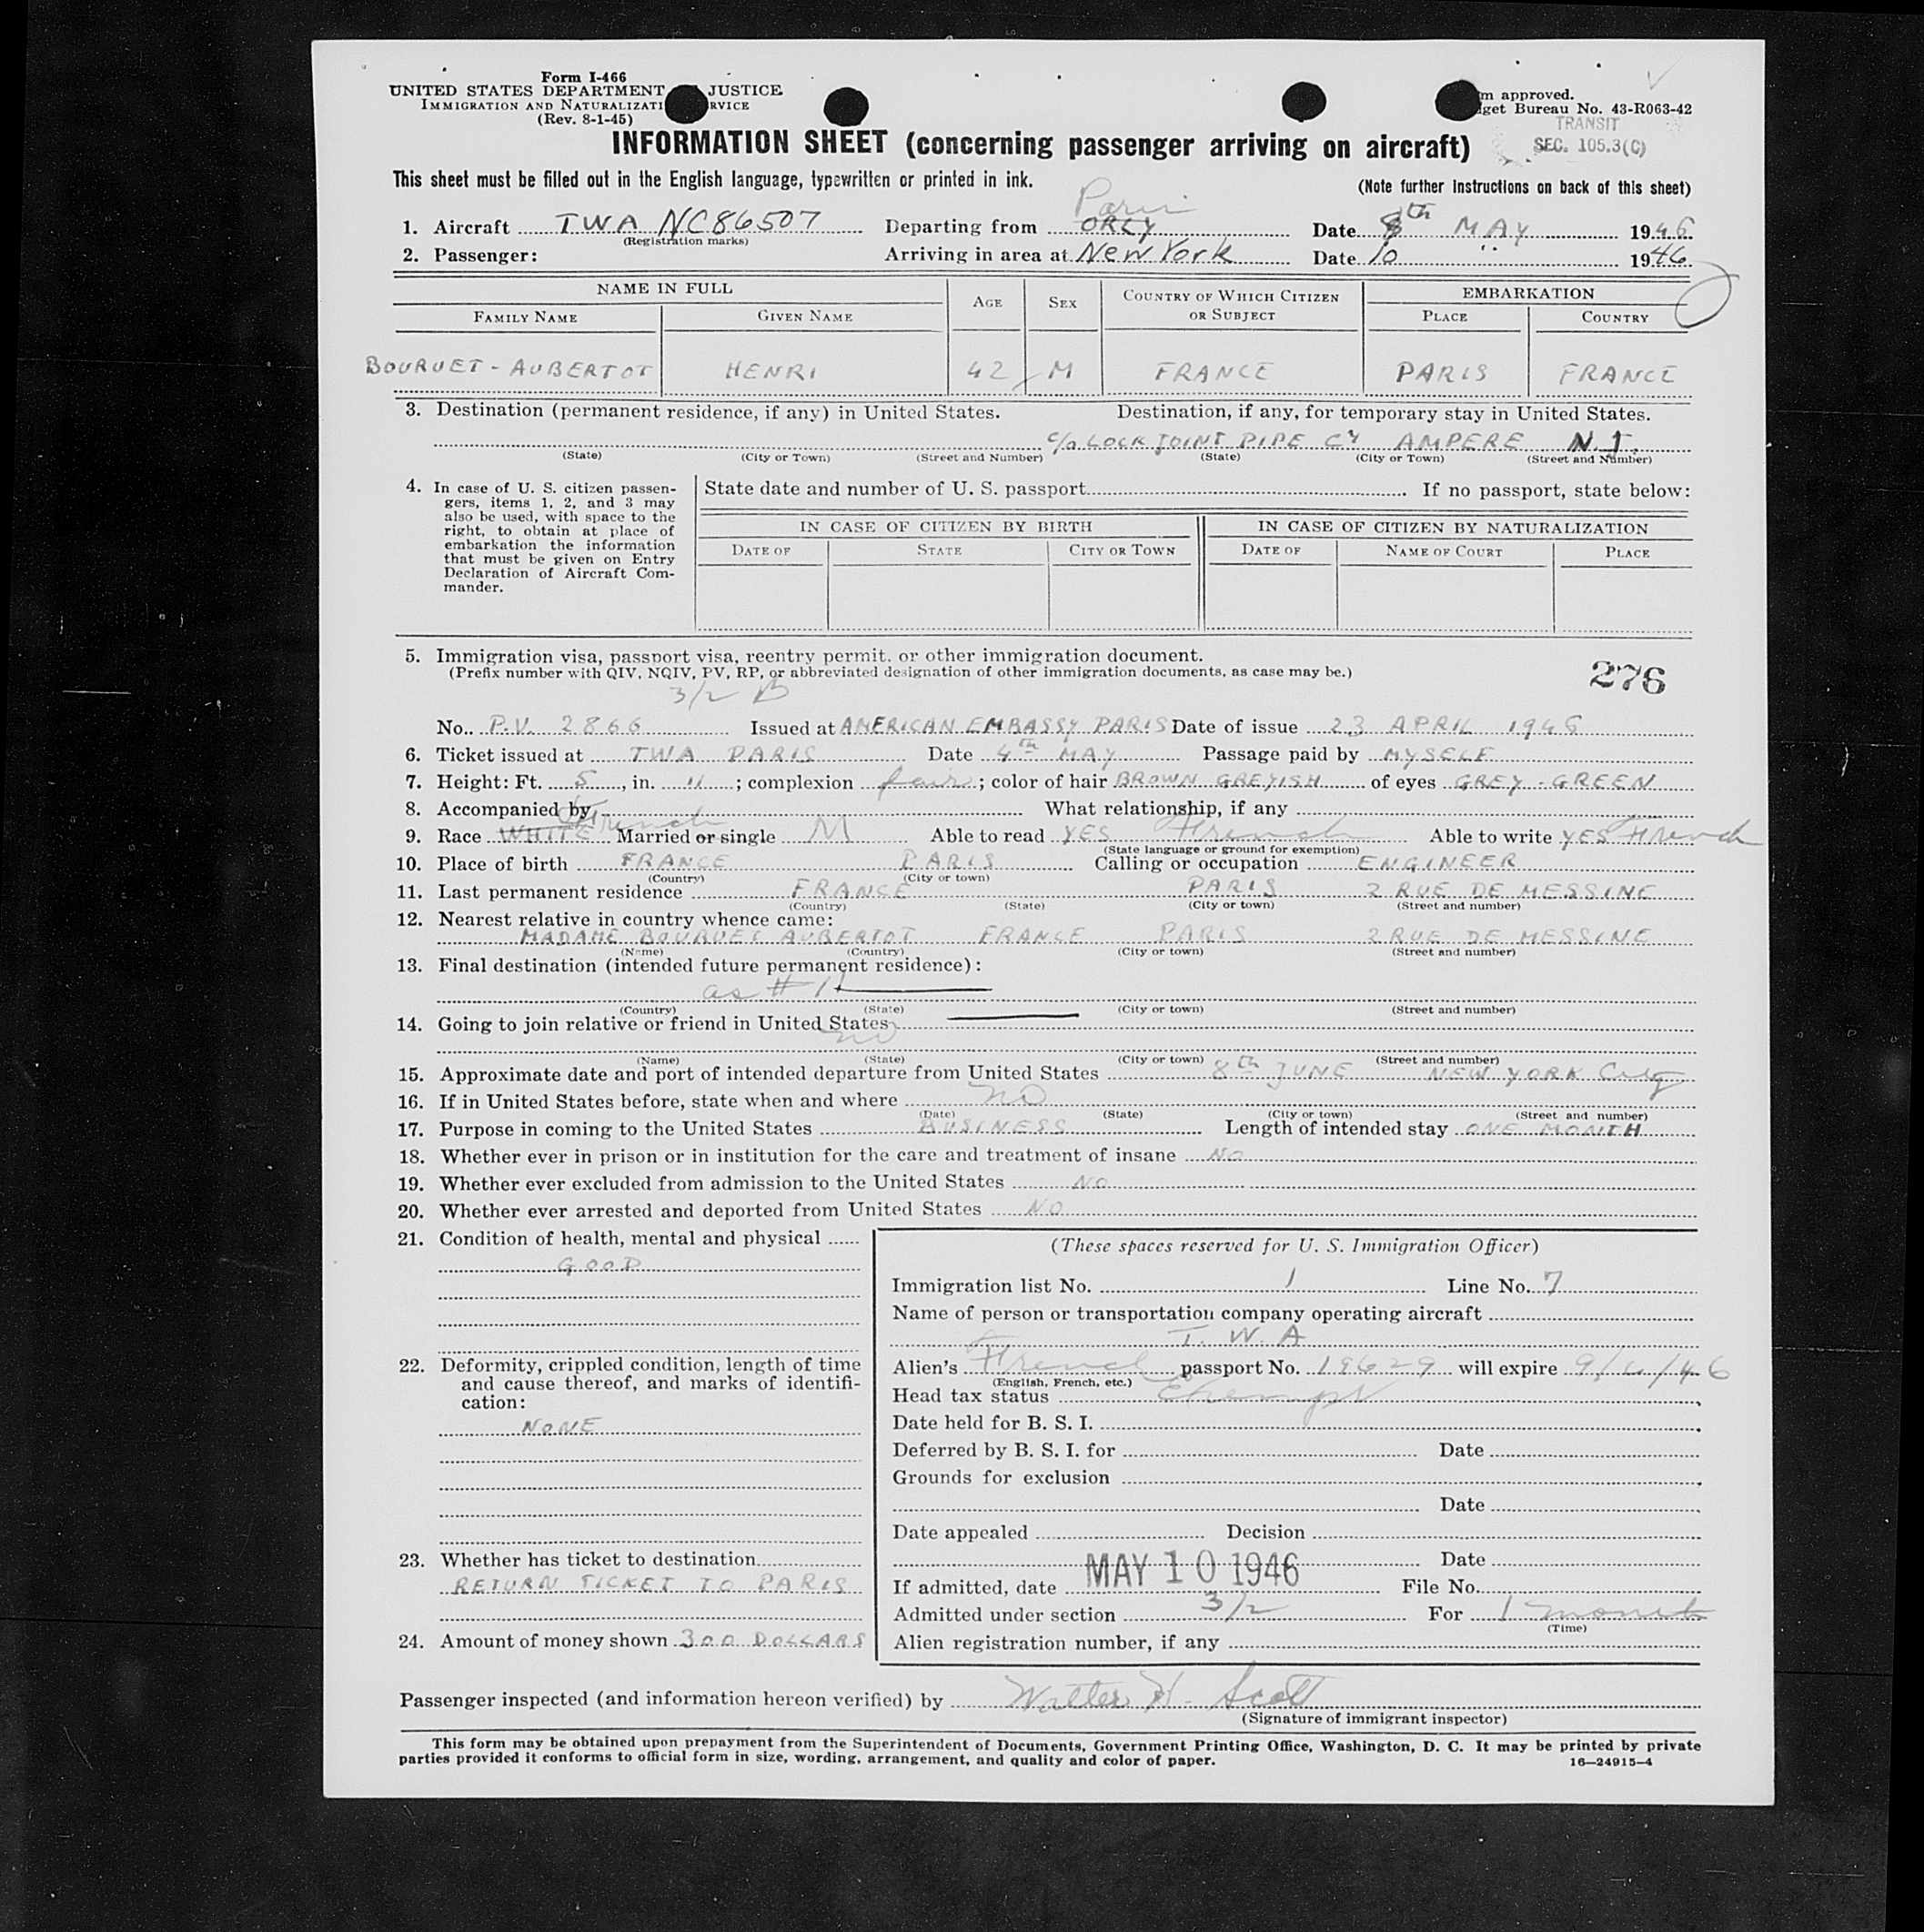 Form I-466
UNITED STATES DEPARTMENT JUSTICE
IMMIGRATION AND NATURALIZATI RVICE
(Rev. 8-1-45)
m approved.
get Bureau No. 43-R063-42
TRANSIT
SEC. 105.3(C)
INFORMATION SHEET (concerning passenger arriving on aircraft)
This sheet must be filled out in the English language, typewritten or printed in ink.
(Note further instructions on back of this sheet)
Paris
1. Aircraft TWA NC86507 Departing from ORLY Date 8th MAY 1946
(Registration marks)
2. Passenger: Arriving in area at New York Date 10 " 1946
NAME IN FULL AGE SEX COUNTRY OF WHICH CITIZEN OR SUBJECT EMBARKATION
FAMILY NAME GIVEN NAME PLACE COUNTRY
BOURUET-AUBERTOT HENRI 42 M FRANCE PARIS FRANCE
3. Destination (permanent residence, if any) in United States. Destination, if any, for temporary stay in United States.
c/o LOCK JOINT PIPE CY AMPERE N.J.
(State) (City or Town) (Street and Number) (State) (City or Town) (Street and Number)
4. In case of U. S. citizen passen-
gers, items 1, 2, and 3 may
also be used, with space to the
right, to obtain at place of
embarkation the information
that must be given on Entry
Declaration of Aircraft Com-
mander.
State date and number of U. S. passport If no passport, state below:
IN CASE OF CITIZEN BY BIRTH IN CASE OF CITIZEN BY NATURALIZATION
DATE OF STATE CITY OR TOWN DATE OF NAME OF COURT PLACE
5. Immigration visa, passport visa, reentry permit, or other immigration document.
(Prefix number with QIV, NQIV, PV, RP, or abbreviated designation of other immigration documents, as case may be.)
276
3/2 B
No. P.V. 2866 Issued at AMERICAN EMBASSY PARIS Date of issue 23 APRIL 1946
6. Ticket issued at TWA PARIS Date 4th MAY Passage paid by MYSELF
7. Height: Ft. 5, in. 11; complexion fair; color of hair BROWN GREYISH of eyes GREY-GREEN
8. Accompanied by What relationship, if any
French
9. Race WHITE Married or single M Able to read YES French Able to write YES French
(State language or ground for exemption)
10. Place of birth FRANCE PARIS Calling or occupation ENGINEER
(Country) (City or town)
11. Last permanent residence FRANCE PARIS 2 RUE DE MESSINE
(Country) (State) (City or town) (Street and number)
12. Nearest relative in country whence came:
MADAME BOURUET AUBERTOT FRANCE PARIS 2 RUE DE MESSINE
(Name) (Country) (City or town) (Street and number)
13. Final destination (intended future permanent residence):
as # 11
(Country) (State) (City or town) (Street and number)
14. Going to join relative or friend in United States
no
(Name) (State) (City or town) (Street and number)
15. Approximate date and port of intended departure from United States 8th JUNE NEW YORK City
16. If in United States before, state when and where no
(Date) (State) (City or town) (Street and number)
17. Purpose in coming to the United States BUSINESS Length of intended stay ONE MONTH
18. Whether ever in prison or in institution for the care and treatment of insane NO
19. Whether ever excluded from admission to the United States NO
20. Whether ever arrested and deported from United States NO
21. Condition of health, mental and physical
GOOD
22. Deformity, crippled condition, length of time
and cause thereof, and marks of identifi-
cation:
NONE
23. Whether has ticket to destination
RETURN TICKET TO PARIS
24. Amount of money shown 300 DOLLARS
(These spaces reserved for U. S. Immigration Officer)
Immigration list No. 1 Line No. 7
Name of person or transportation company operating aircraft
T. W. A
Alien's French passport No. 19629 will expire 9/4/46
(English, French, etc.)
Head tax status Exempt
Date held for B. S. I.
Deferred by B. S. I. for Date
Grounds for exclusion
Date
Date appealed Decision
Date
If admitted, date MAY 10 1946 File No.
Admitted under section 3/2 For 1 month
(Time)
Alien registration number, if any
Passenger inspected (and information hereon verified) by Walter H. Scott
(Signature of immigrant inspector)
This form may be obtained upon prepayment from the Superintendent of Documents, Government Printing Office, Washington, D. C. It may be printed by private
parties provided it conforms to official form in size, wording, arrangement, and quality and color of paper.
16—24915-4